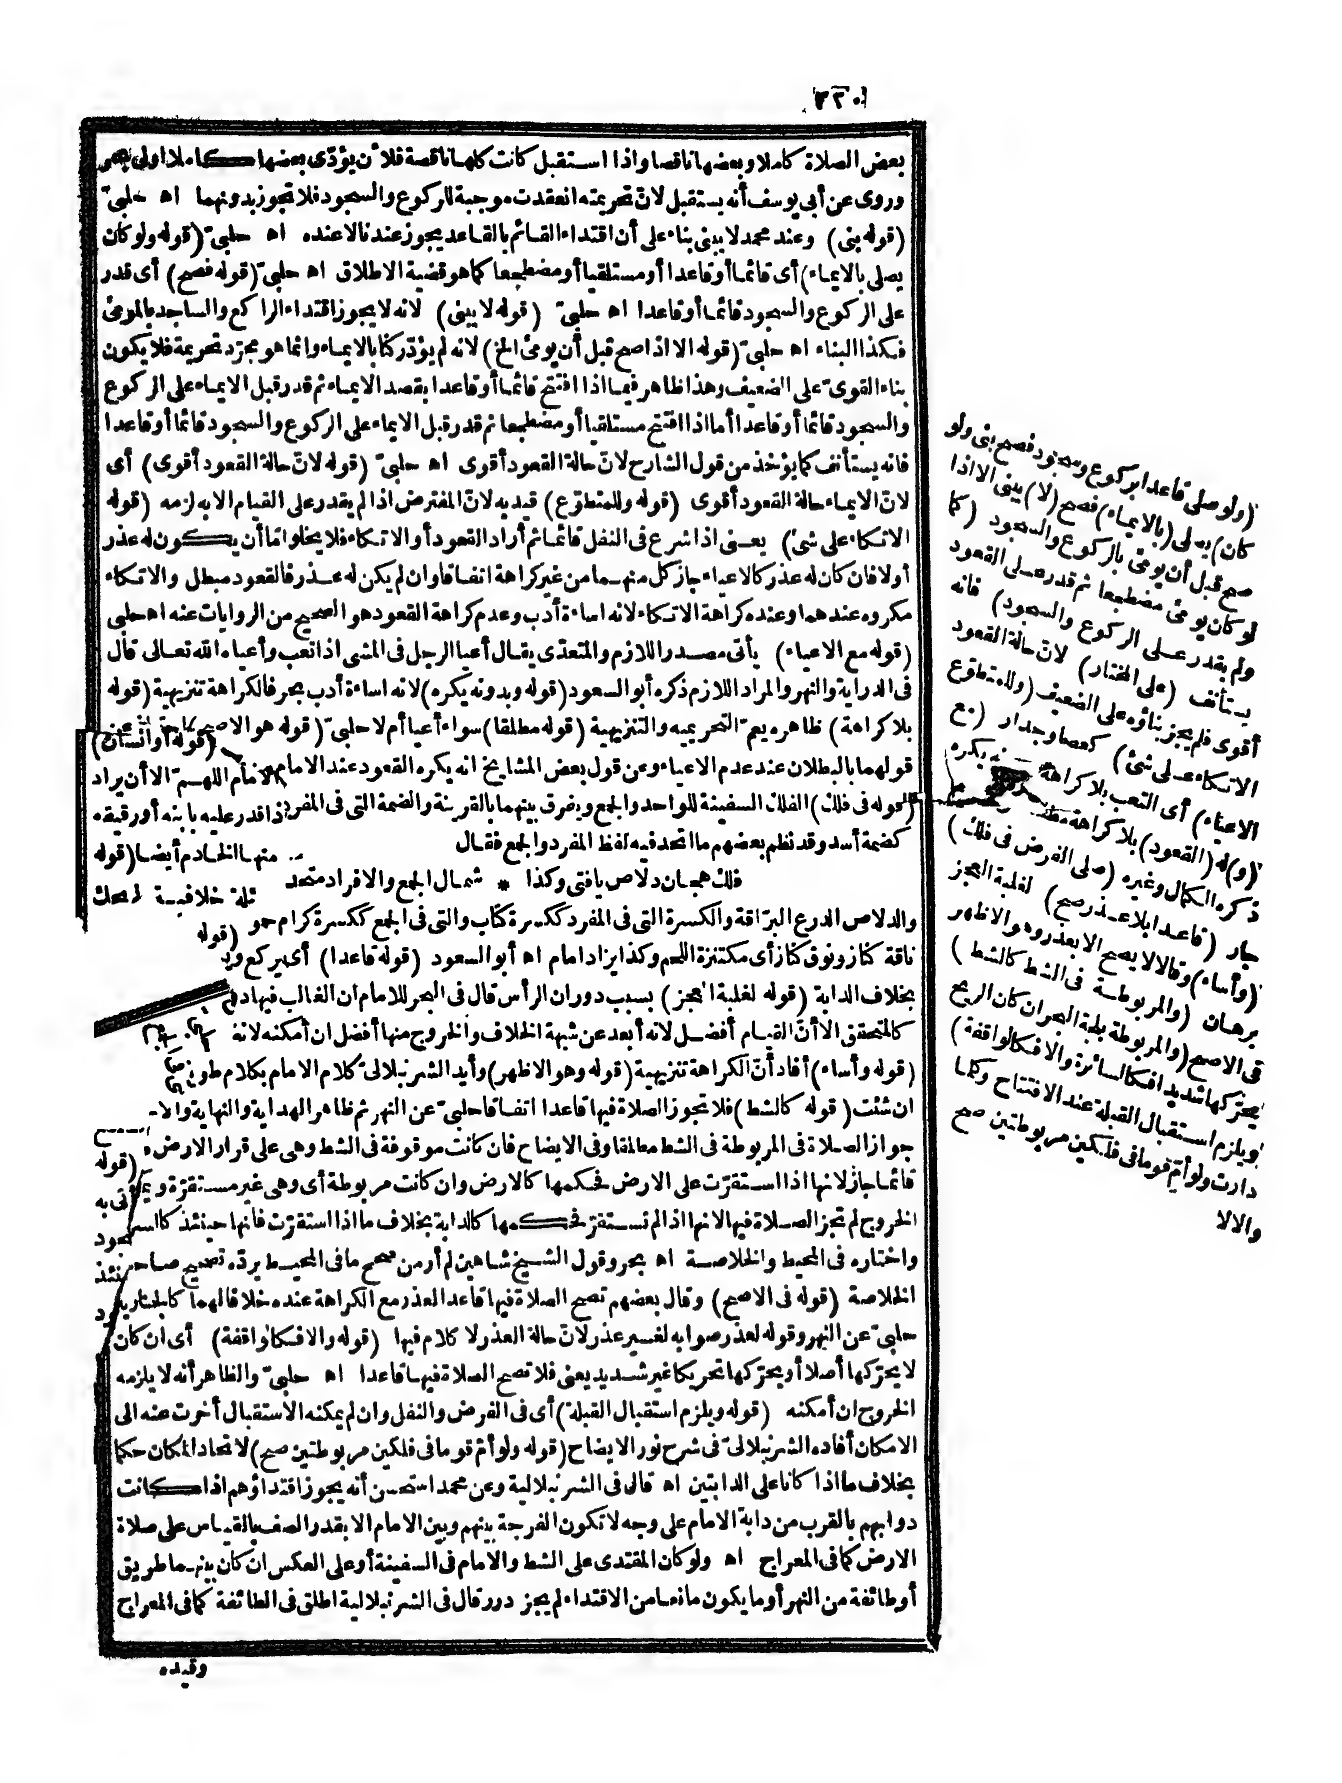 ٣٢٠
بعض الصلاة كاملا وبعضها ناقصا واذا استقبل كانت كلها ناقصة فلأن يؤدّى بعضها كاملا اولى بحر
وروى عن أبى يوسف أنه يستقبل لانّ تحريمته انعقدت موجبة للركوع والسجود فلا تجوز بدونهما اه حلبىّ
(قوله بنى) وعند محمد لا يبنى بناء على أن اقتداء القائم بالقاعد يجوز عندنا لا عنده اه حلبىّ (قوله ولو كان
يصلى بالايماء) أى قائما أو قاعدا أو مستلقيا أو مضطجعا كما هو قضية الاطلاق اه حلبىّ (قوله فصح) أى قدر
على الركوع والسجود قائما أو قاعدا اه حلبىّ (قوله لا يبنى) لانه لا يجوز اقتداء الراكع والساجد بالمومئ
فكذا البناء اه حلبىّ (قوله الا اذا صح قبل أن يومئ الخ) لانه لم يؤدّ ركنا بالايماء وانما هو مجرّد تحريمة فلا يكون
بناء القوىّ على الضعيف وهذا ظاهر فيما اذا افتتح قائما أو قاعدا بقصد الايماء ثم قدر قبل الايماء على الركوع
والسجود قائما أو قاعدا أما اذا افتتح مستلقيا أو مضطجعا ثم قدر قبل الايماء على الركوع والسجود قائما أو قاعدا
فانه يستأنف كما يؤخذ من قول الشارح لانّ حالة القعود أقوى اه حلبىّ (قوله لانّ حالة القعود أقوى) أى
لانّ الايماء حالة القعود أقوى (قوله وللمتطوّع) قيد به لانّ المفترض اذا لم يقدر على القيام الا به لزمه (قوله
الاتكاء على شئ) يعنى اذا شرع فى النفل قائما ثم أراد القعود أو الاتكاء فلا يخلو اما أن يكون له عذر
أولا فان كان له عذر كالاعياء جاز كل منهما من غير كراهة اتفاقا وان لم يكن له عذر فالقعود مبطل والاتكاء
مكروه عندهما وعنده كراهة الاتكاء لانه اساءة أدب وعدم كراهة القعود هو الصحيح من الروايات عنه اه حلبى
(قوله مع الاعياء) يأتى مصدر اللازم والمتعدّى يقال أعيا الرجل فى المشى اذا تعب وأعياه الله تعالى قال
فى الدراية والنهر والمراد اللازم ذكره أبو السعود (قوله وبدونه يكره) لانه اساءة أدب بحر فالكراهة تنزيهية (قوله
بلا كراهة) ظاهره يعمّ التحريمية والتنزيهية (قوله مطلقا) سواء أعيا أم لا حلبىّ (قوله هو الاصح)
(قوله أو انسان)
قولهما بالبطلان عند عدم الاعياء وعن قول بعض المشايخ انه يكره القعود عند الامام
الامام اللهمّ الا أن يراد
(قوله فى فلك) الفلك السفينة للواحد والجمع ويفرق بينهما بالقرينة والضمة التى فى المفرد
اذا قدر عليه بابنه أو رقيقه
كضمة أسد وقد نظم بعضهم ما اتحد فيه لفظ المفرد والجمع فقال
منها الخادم أيضا (قوله
فلك هجان دلاص يافتى وكذا * شمال الجمع والافراد متحد
ثلة خلافية
والدلاص الدرع البرّاقة والكسرة التى فى المفرد ككسرة كتاب والتى فى الجمع ككسرة كرام
(قوله
ناقة كناز ونوق كناز أى مكتنزة اللحم وكذا يزاد امام اه أبو السعود (قوله قاعدا) أى يركع
بخلاف الدابة (قوله لغلبة العجز) بسبب دوران الرأس قال فى البحر للامام ان الغالب فيها
كالمتحقق الا أنّ القيام أفضل لانه أبعد عن شبهة الخلاف والخروج منها أفضل ان أمكنه لانه
(قوله وأساء) أفاد أنّ الكراهة تنزيهية (قوله وهو الاظهر) وأيد الشرنبلالىّ كلام الامام بكلام طويل
ان شئت (قوله كالشط) فلا تجوز الصلاة فيها قاعدا اتفاقا حلبىّ عن النهر ثم ظاهر الهداية والنهاية
جواز الصلاة فى المربوطة فى الشط مطلقا وفى الايضاح فان كانت موقوفة فى الشط وهى على قرار الارض
(قوله
قائما جاز لانها اذا استقرّت على الارض فحكمها كالارض وان كانت مربوطة أى وهى غير مستقرّة
الخروج لم تجز الصلاة فيها لانها اذا لم تستقرّ فحكمها كالدابة بخلاف ما اذا استقرّت فانها حينئذ
واختاره فى المحيط والخلاصة اه بحر وقول الشيخ شاهين لم أر من صحح ما فى المحيط يردّه تصحيح صاحب
الخلاصة (قوله فى الاصح) وقال بعضهم تصح الصلاة فيها قاعدا لعذر مع الكراهة عنده خلافا لهما
حلبىّ عن النهر وقوله لعذر صوابه لغير عذر لانّ حالة العذر لا كلام فيها (قوله والا فكالواقفة) أى ان كان
لا يحرّكها أصلا أو يحرّكها تحريكا غير شديد يعنى فلا تصح الصلاة فيها قاعدا اه حلبىّ والظاهر أنه لا يلزمه
الخروج ان أمكنه (قوله ويلزم استقبال القبلة) أى فى الفرض والنفل وان لم يمكنه الاستقبال أخرت عنه الى
الامكان أفاده الشرنبلالىّ فى شرح نور الايضاح (قوله ولو أمّ قوما فى فلكين مربوطتين صح) لاتحاد المكان حكما
بخلاف ما اذا كانا على الدابتين اه قال فى الشرنبلالية وعن محمد استحسن أنه يجوز اقتداؤهم اذا كانت
دوابهم بالقرب من دابة الامام على وجه لا تكون الفرجة بينهم وبين الامام الا بقدر الصف بالقياس على صلاة
الارض كما فى المعراج اه ولو كان المقتدى على الشط والامام فى السفينة أو على العكس ان كان بينهما طريق
أو طائفة من النهر أو ما يكون مانعا من الاقتداء لم يجز درر قال فى الشرنبلالية اطلق فى الطائفة كما فى المعراج
وقيده
(ولو صلى قاعدا بركوع وسجود فصح بنى ولو
كان) يصلى (بالايماء) فصح (لا) يبنى الا اذا
صح قبل أن يومئ بالركوع والسجود (كما
لو كان يومئ مضطجعا ثم قدر على القعود
ولم يقدر على الركوع والسجود) فانه
يستأنف (على المختار) لانّ حالة القعود
أقوى فلم يجز بناؤه على الضعيف (وللمتطوع
الاتكاء على شئ) كعصا وجدار (مع
الاعياء) أى التعب بلا كراهة وبدونه يكره
(و)له (القعود) بلا كراهة مطلقا
ذكره الكمال وغيره (صلى الفرض فى فلك)
جار (قاعدا بلا عذر صح) لغلبة العجز
(وأساء) وقالا لا يصح الا بعذر وهو الاظهر
برهان (والمربوطة فى الشط كالشط)
فى الاصح (والمربوطة بلجة البحر ان كان الريح
يحرّكها شديدا فكالسائرة والا فكالواقفة)
ويلزم استقبال القبلة عند الافتتاح وكلما
دارت ولو أمّ قوما فى فلكين مربوطتين صح
والا لا